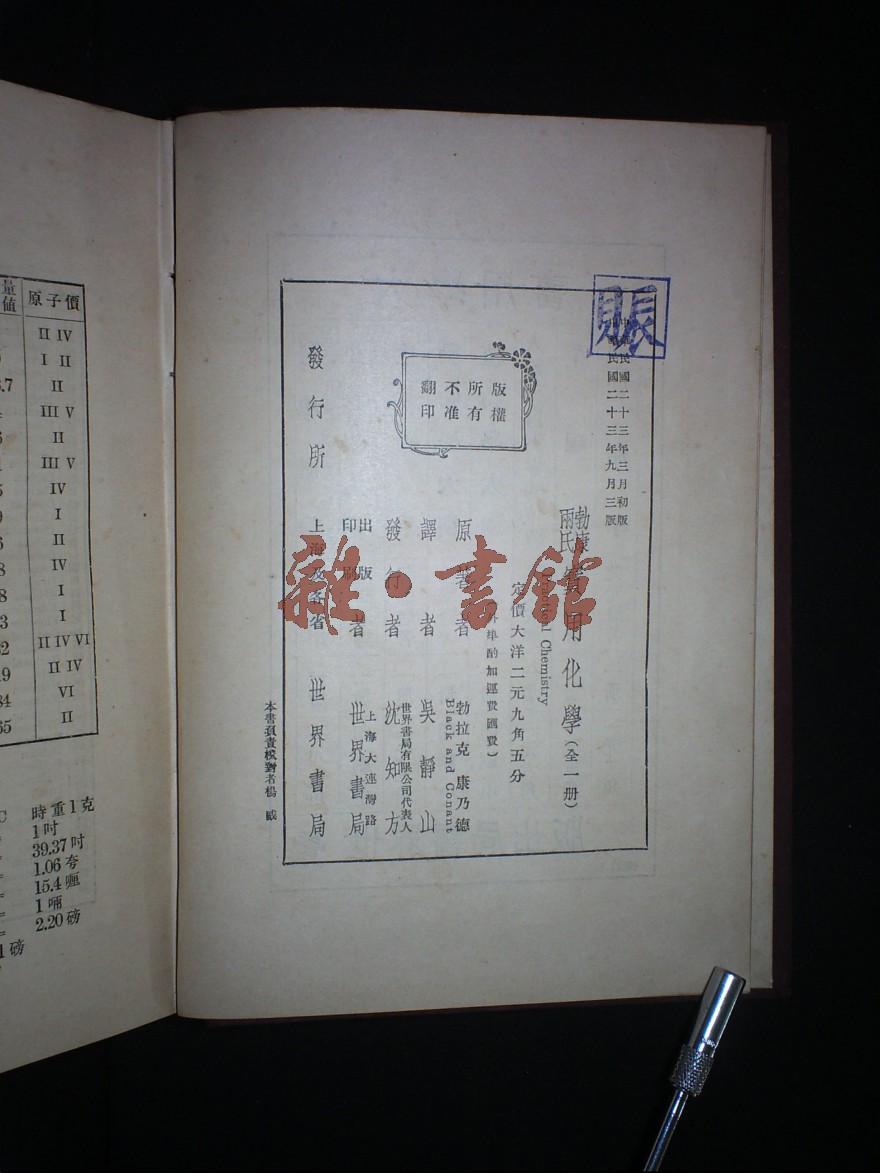 賬
中華民國二十三年三月初版
中華民國二十三年九月三版
勃康
兩氏
實用化學(全一册)
Practical Chemistry
定價大洋二元九角五分
外埠酌加運費匯費)
原著者 勃拉克 康乃德
Black and Conant
譯者 吳靜山
發行者 世界書局有限公司代表人
沈知方
出版
印刷
者 上海大連灣路
世界書局
發行所 上海及各省 世界書局
版權
所有
不准
翻印
本書負責校對者楊
雜·書館
量
值
原子價
II IV
I II
3.7 II
III V
II
III V
IV
I
II
IV
I
I
II IV VI
II IV
VI
II
C 時重1克
1吋
39.37吋
1.06夸
15.4厘
1啢
2.20磅
1磅